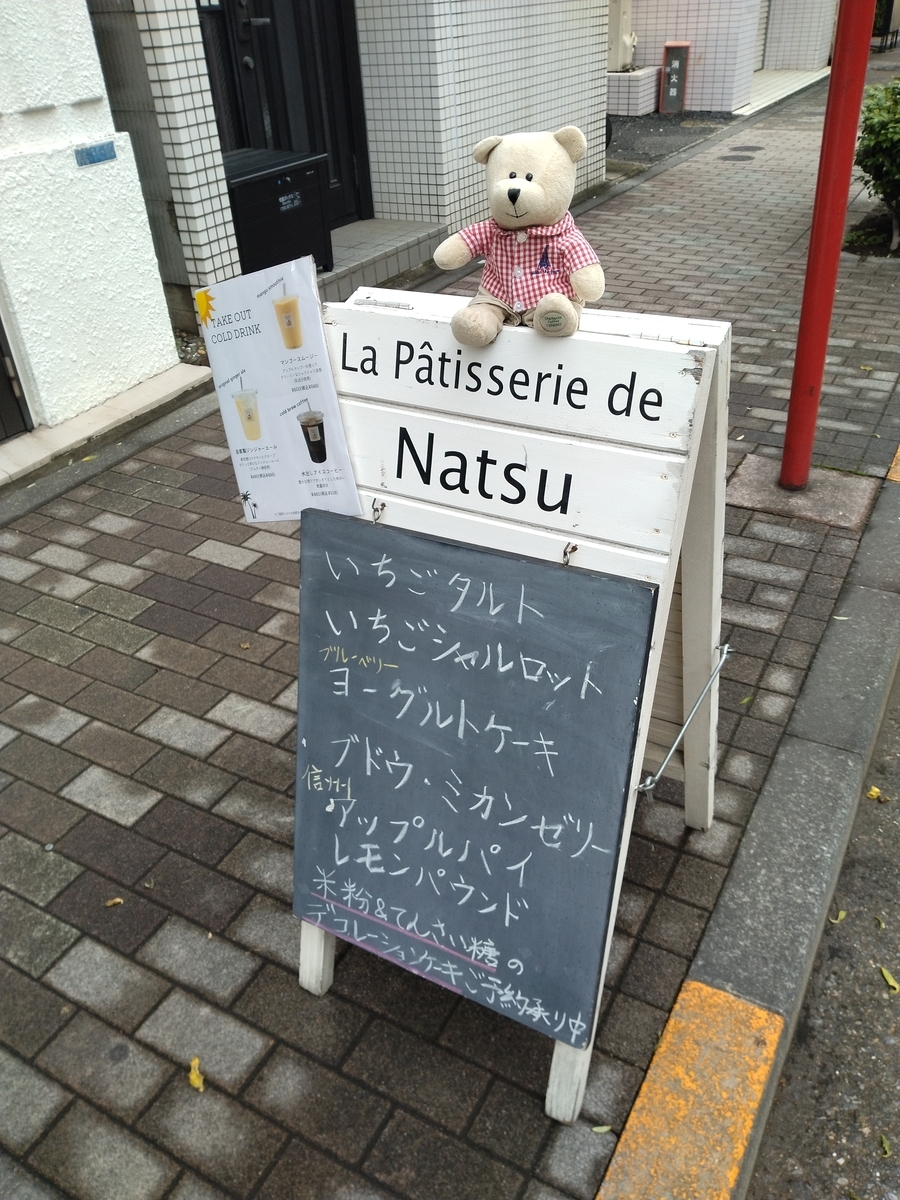 消火器
TAKE OUT
COLD DRINK
mango smoothie
マンゴースムージー
original ginger ale
自家製ジンジャーエール
cold brew coffee
水出しアイスコーヒー
La Pâtisserie de
Natsu
いちごタルト
いちごシャルロット
ブルーベリー
ヨーグルトケーキ
ブドウ・ミカンゼリー
信州
アップルパイ
レモンパウンド
米粉&てんさい糖の
デコレーションケーキご予約承り中